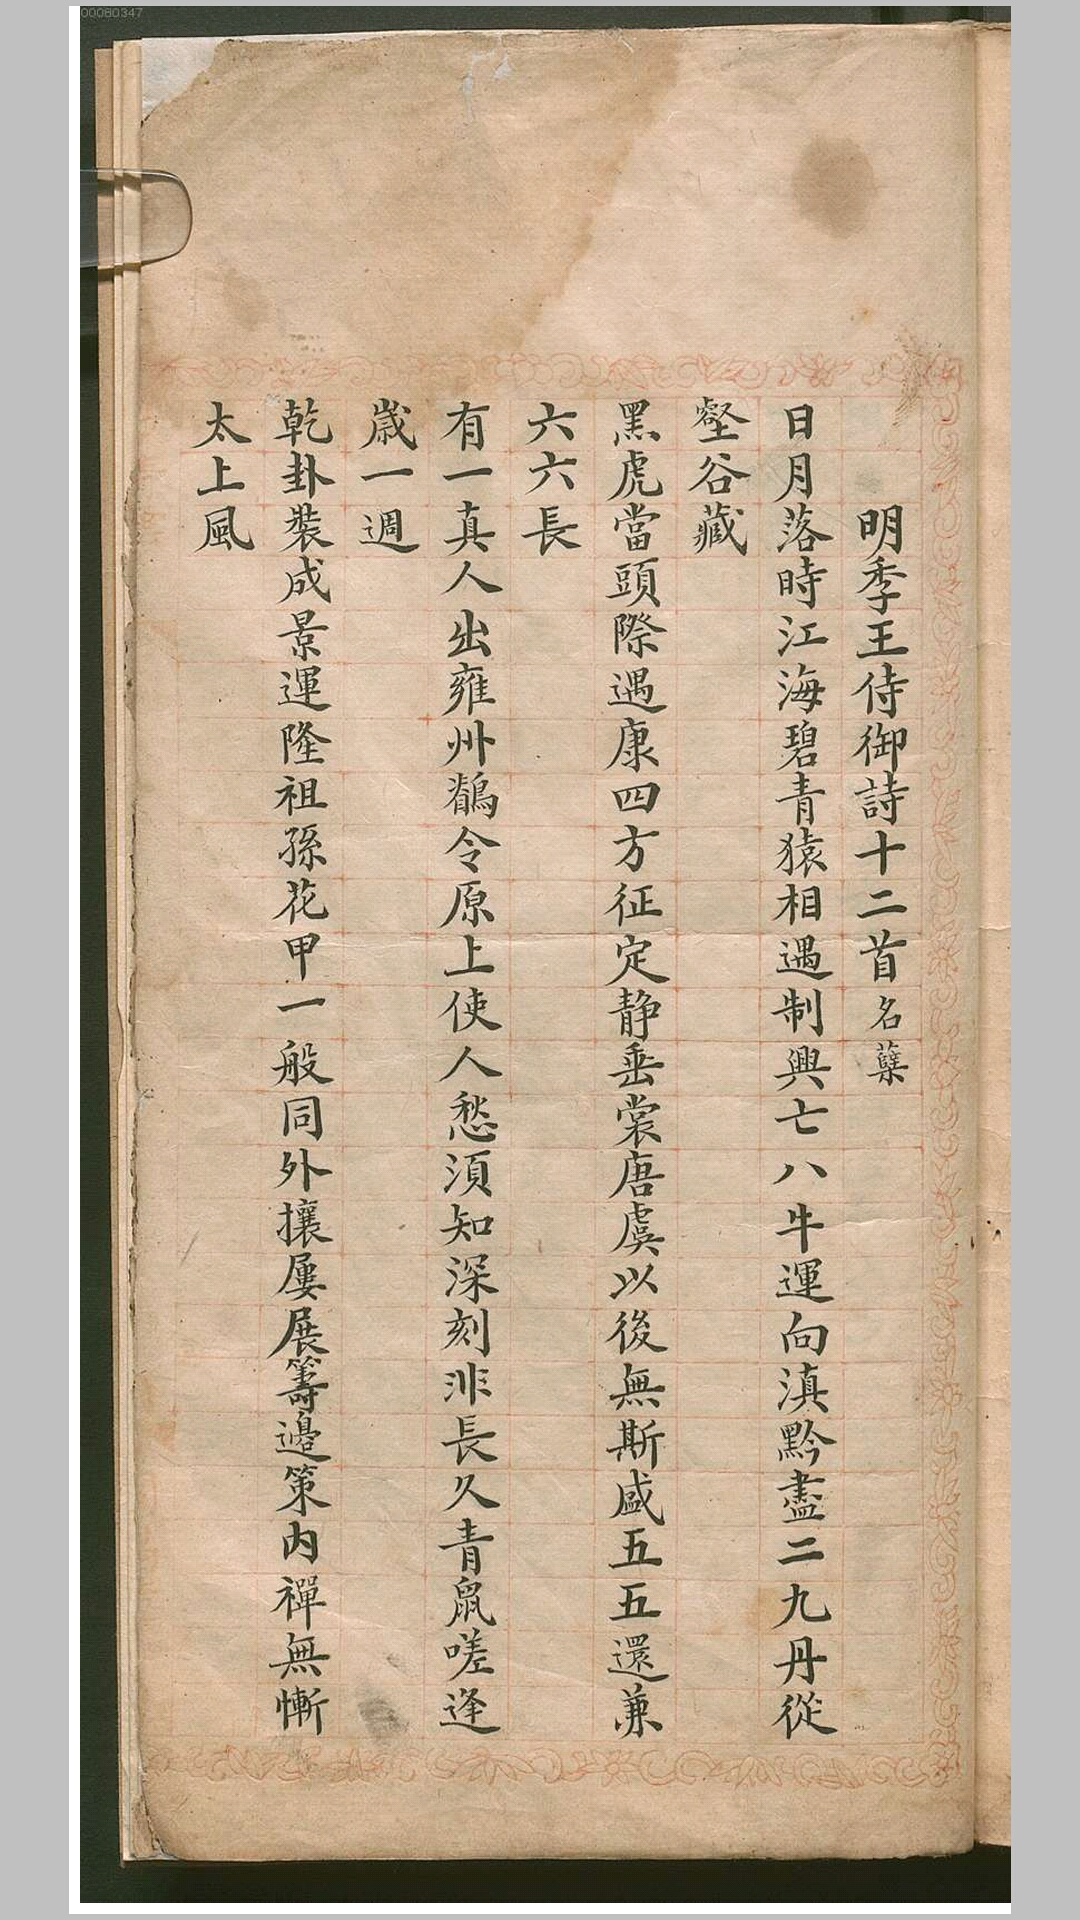 00080347
明季王侍御詩十二首名蘖
日月落時江海碧青猿相遇制興亡八牛運向滇黔盡二九丹從
壑谷藏
黑虎當頭際遇康四方征定静垂裳唐虞以後無斯盛五五還兼
六六長
有一真人出雍州鶺令原上使人愁須知深刻非長久青鼠嗟逢
歲一週
乾卦裝成景運隆祖孫花甲一般同外攘屢展籌邊策内禪無慚
太上風